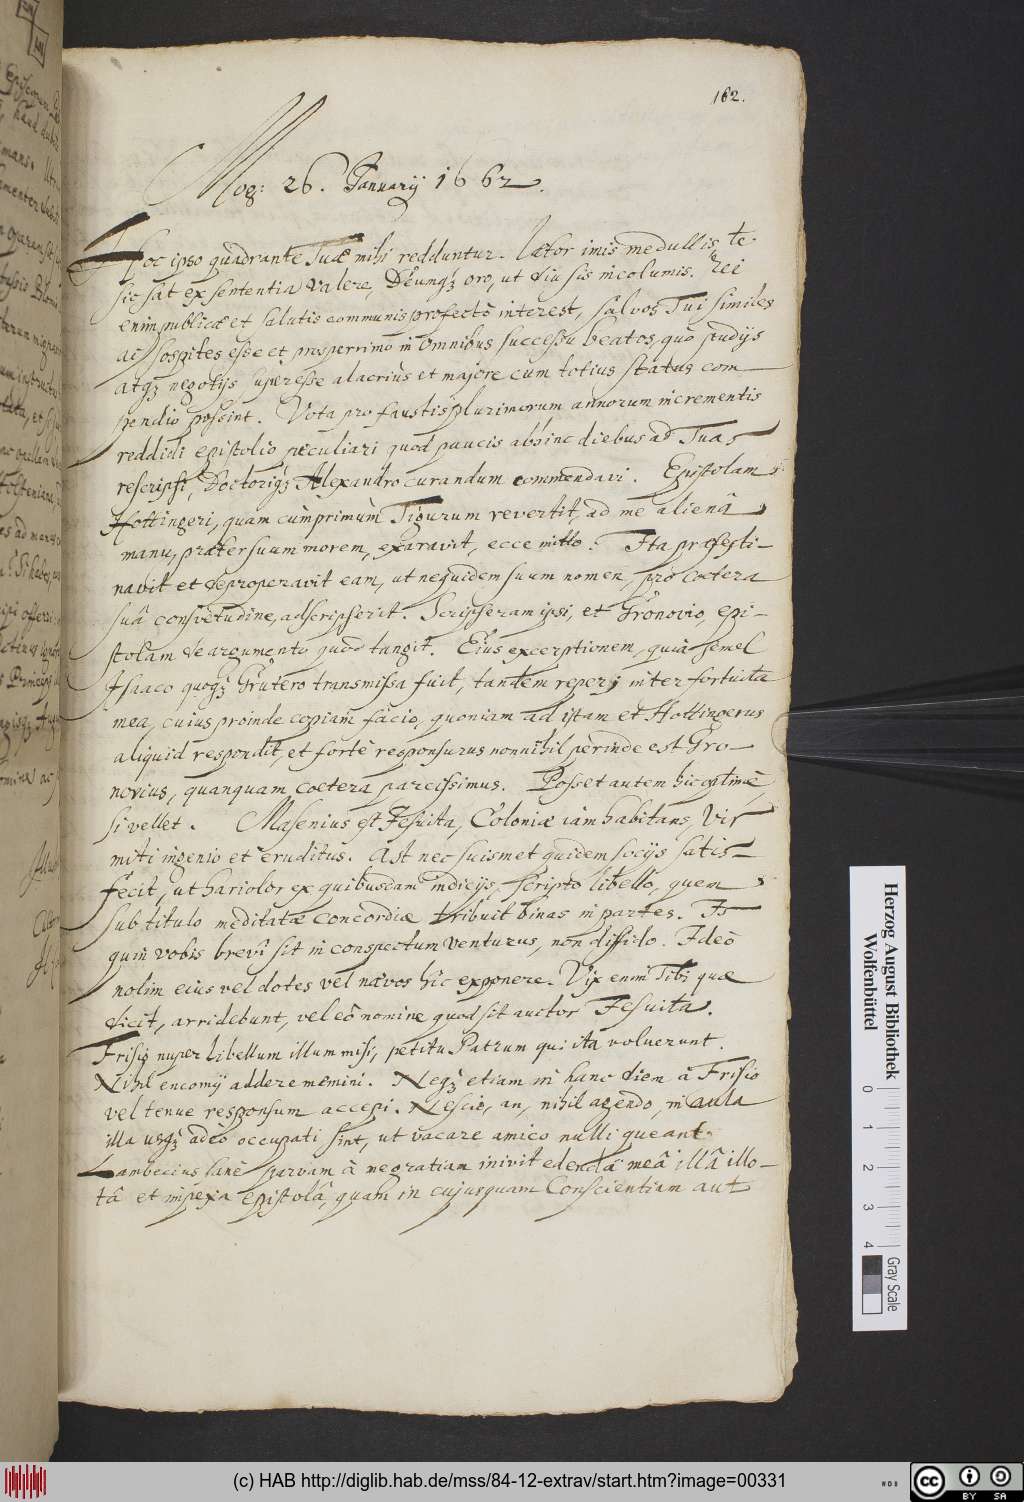 162.
Mog: 26. Januarij 1662.
Hoc ipso quadrante Tuæ mihi redduntur. Lætor imis medullis te
sic sat ex sententia valere, Deumq; oro, ut diu sis incolumis. Rei
enim publicæ et salutis communis profectò interest, salvos Tui similes
ac sospites esse et prosperrimo in omnibus successu beatos, quo studijs
atq; negotijs superesse alacrius et majore cum totius status com-
pendio possint. Vota pro faustis plurimorum annorum incrementis
reddidi epistolio peculiari quod paucis abhinc diebus ad Tuas
rescripsi, Doctoriq; Alexandro curandum commendavi. Epistolam
Hottingeri, quam cùmprimùm Tigurum revertit, ad me alienâ
manu, præter suum morem, exaravit, ecce mitto. Ita præfesti-
navit et deproperavit eam, ut nequidem suum nomen, pro cætera
suâ consvetudine, adscripserit. Scripseram ipsi, et Gronovio, epi-
stolam de argumento quod tangit. Ejus excerptionem, quia semel
Isaaco quoq; Grutero transmissa fuit, tandem reperj inter fortuita
mea, cuius proinde copiam facio, quoniam ad istam et Hottingerus
aliquid respondit, et fortè responsurus nonnihil perinde est Gro-
novius, quanquam coetera parcissimus. Posset autem hic optimè
si vellet. Masenius est Jesuita, Coloniæ iam habitans, Vir
miti ingenio et eruditus. Ast nec suismet quidem socijs satis-
fecit, ut hariolor ex quibusdam indicijs, scripto libello, quem
sub titulo meditatæ concordiæ tribuit binas in partes. Is
quin vobis brevi sit in conspectum venturus, non diffido. Ideò
nolim eius vel dotes vel nævos hîc exponere. Vix enim Tibi quæ
dicit, arridebunt, vel eô nomine quod sit auctor Jesuita.
Frisio nuper libellum illum misi, petitu Patrum qui ita voluerunt.
Nihil encomij addere memini. Neq; etiam in hanc diem à Frisio
vel tenue responsum accepi. Nescio, an, nihil agendo, in aula
illa usq; adeò occupati sint, ut vacare amico nulli queant.
Lambecius sanè parvam à me gratiam inivit edendâ meâ illâ illo-
tâ et impexa epistolâ, quam in cujusquam Conscientiam aut
Herzog August Bibliothek
Wolfenbüttel
0 1 2 3 4
Gray Scale
(c) HAB http://diglib.hab.de/mss/84-12-extrav/start.htm?image=00331
cc BY SA